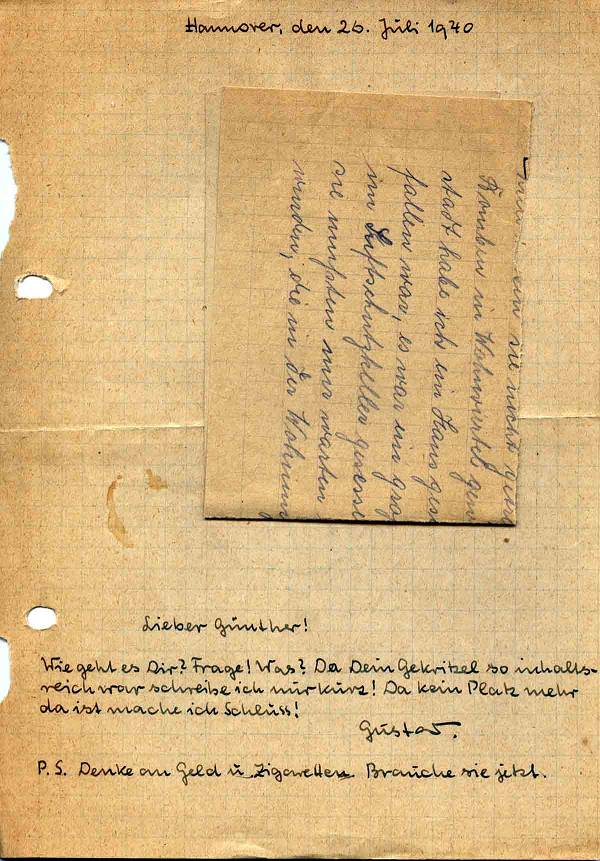 Hannover, den 26. Juli 1940
sie nicht
Bomben in Wohnviertel gew
stadt habe ich ein Haus ges
fallen war, es war ein groß
im Luftschutzkeller gesesse
sie mußten nur warten
wurden, die in der Wohnung
Lieber Günther!
Wie geht es Dir? Frage! Was? Da Dein Gekritzel so inhalts-
reich war schreibe ich nur kurz! Da kein Platz mehr
da ist mache ich Schluss!
Gustav.
P.S. Denke an Geld u. Zigaretten. Brauche sie jetzt.